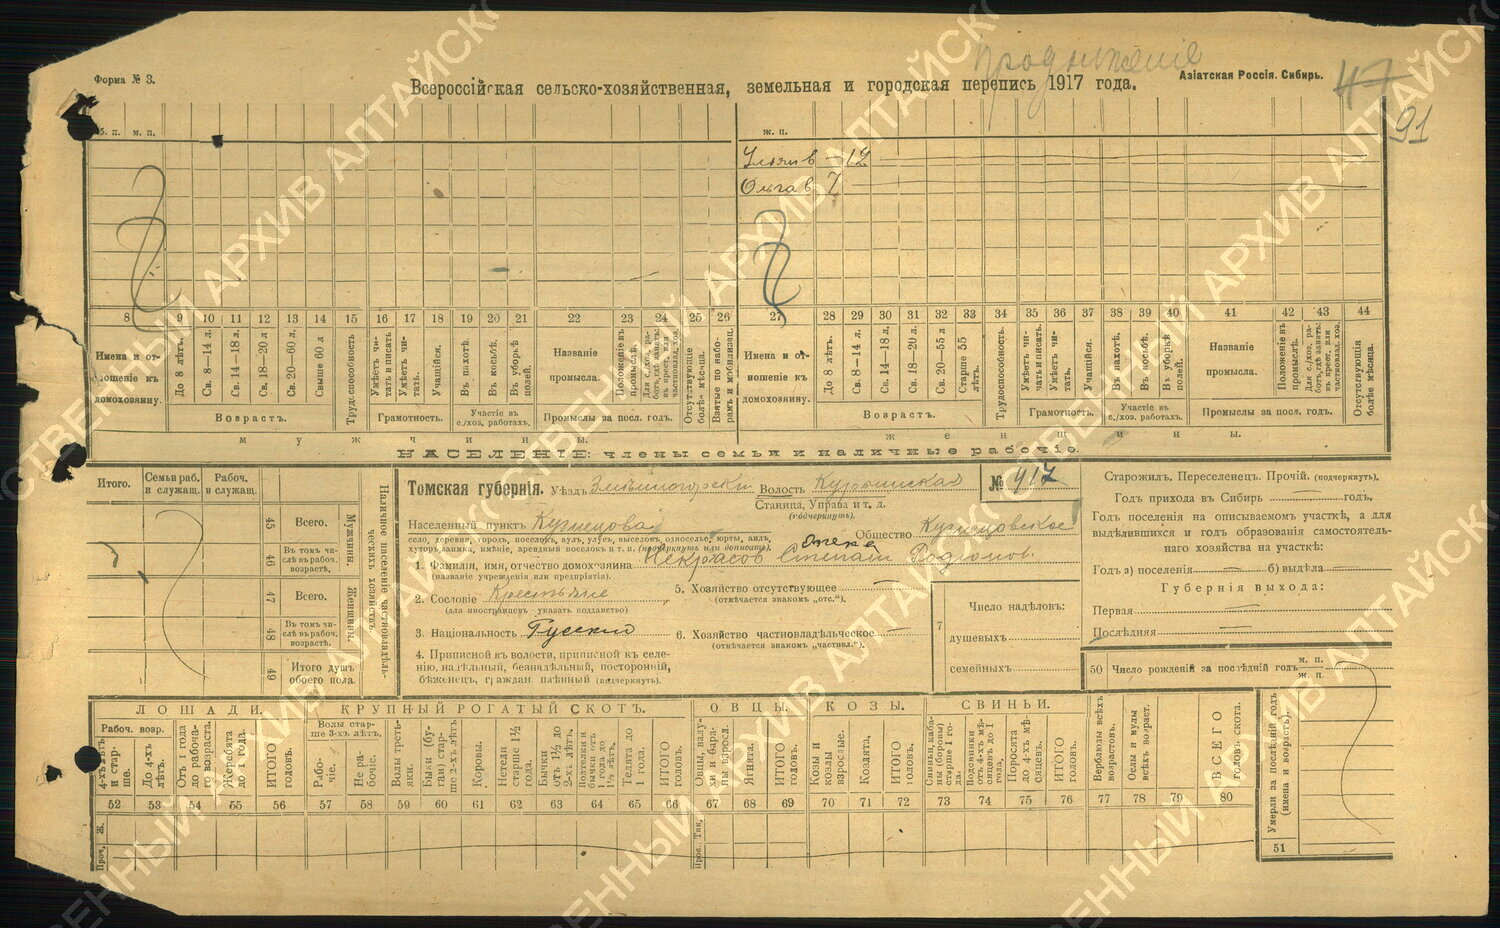 Продолжение
Форма № 3.
Всероссійская сельско-хозяйственная, земельная и городская перепись 1917 года.
Азіатская Россія. Сибирь.
47
91
б. п. м. п.
ж. п.
Ульяна в — 12
Ольга в 7
8 9 10 11 12 13 14 15 16 17 18 19 20 21 22 23 24 25 26
27 28 29 30 31 32 33 34 35 36 37 38 39 40 41 42 43 44
Имена и отношеніе къ домохозяину.
До 8 лѣтъ.
Св. 8—14 л.
Св. 14—18 л.
Св. 18—20 л
Св. 20—60 л.
Свыше 60 л
Трудоспособность
Умѣетъ читать и писать
Умѣетъ читать.
Учащійся.
Въ пахотѣ.
Въ косьбѣ.
Въ уборкѣ полей.
Названіе промысла.
Положеніе въ промыслѣ.
Отсутствующіе болѣе мѣсяца.
Взятые по наборамъ и мобилизац.
Возрастъ.
Грамотность.
Участіе въ с./хоз. работахъ.
Промыслы за посл. годъ.
Имена и отношеніе къ домохозяину.
До 8 лѣтъ.
Св. 8—14 л.
Св. 14—18 л.
Св. 18—20 л.
Св. 20—55 л
Старше 55 лѣтъ.
Трудоспособность.
Умѣетъ читать и писать.
Умѣетъ читать.
Учащійся.
Въ пахотѣ.
Въ косьбѣ.
Въ уборкѣ полей.
Названіе промысла.
Положеніе въ промыслѣ.
Отсутствующія болѣе мѣсяца.
Возрастъ.
Грамотность.
Участіе въ с./хоз. работахъ.
Промыслы за посл. годъ.
мужчины.
женщины.
НАСЕЛЕНІЕ: члены семьи и наличные рабочіе.
Итого.
Семьи раб. и служащ.
Рабоч. и служащ.
45 Всего.
46 Въ томъ числѣ въ рабоч. возрастѣ.
47 Всего.
48 Въ томъ числѣ въ рабоч. возрастѣ.
49 Итого душъ обоего пола.
Мужчины.
Женщины.
Наличное населеніе частновладѣльческихъ хозяйствъ.
Томская губернія. Уѣздъ Змѣиногорскій Волость Курьинская
№ 917
Станица, Управа и т. д.
(подчеркнуть).
Населенный пунктъ Кузнецова
Общество Кузнецовское
село, деревня, городъ, поселокъ, аулъ, улусъ, выселокъ, односелье, юрты, аилъ,
хуторъ, заимка, имѣніе, арендный поселокъ и т. п. (подчеркнуть или дописать).
Опека
1. Фамилія, имя, отчество домохозяина Некрасов Степан Родіонов
(названіе учрежденія или предпріятія).
2. Сословіе Крестьяне
(для иностранцевъ указать подданство)
3. Національность Русскій
4. Приписной къ волости, приписной къ селенію, надѣльный, безнадѣльный, посторонній, бѣженецъ, граждан. плѣнный (подчеркнуть).
5. Хозяйство отсутствующее
(отмѣчается знакомъ „отс.“).
6. Хозяйство частновладѣльческое
(отмѣчается знакомъ „частвл.“).
7
Число надѣловъ:
душевыхъ
семейныхъ
Старожил. Переселенец. Прочій. (подчеркнуть).
Годъ прихода въ Сибирь — годъ.
Годъ поселенія на описываемомъ участкѣ, а для
выдѣлившихся и годъ образованія самостоятельнаго хозяйства на участкѣ:
Годъ а) поселенія — б) выдѣла —
Губернія выхода:
Первая —
Послѣдняя —
50 Число рожденій за послѣдній годъ м. п. ж. п.
ЛОШАДИ.
КРУПНЫЙ РОГАТЫЙ СКОТЪ.
ОВЦЫ.
КОЗЫ.
СВИНЬИ.
Рабоч. возр.
4-хъ лѣтъ и старше.
До 4-хъ лѣтъ.
Отъ 1 года до рабочаго возраста.
Жеребята до 1 года.
ИТОГО головъ.
Волы старше 3-хъ лѣтъ.
Рабочіе.
Не рабочіе.
Волы третьяки.
Быки (бугаи) старше 2-хъ лѣтъ
Коровы.
Нетели старше 1½ года.
Бычки отъ 1½ до 2-хъ лѣтъ.
Подтелки и бычки отъ 1 года до 1½ лѣтъ.
Телята до 1 года.
ИТОГО головъ.
Овцы, валухи и бараны взросл.
Ягнята.
ИТОГО головъ.
Козы и козлы взрослые.
Козлята.
ИТОГО головъ.
Свиньи, кабаны (боровы) старше 1 года.
Подсвинки отъ 4-хъ мѣсяцевъ до 1 года.
Поросята до 4-хъ мѣсяцевъ.
ИТОГО головъ.
Верблюды всѣхъ возрастовъ.
Ослы и мулы всѣхъ возраст.
ВСЕГО головъ скота.
Умерли за послѣдній годъ (имена и возрастъ).
51
52 53 54 55 56 57 58 59 60 61 62 63 64 65 66 67 68 69 70 71 72 73 74 75 76 77 78 79 80
Проч. Ж.